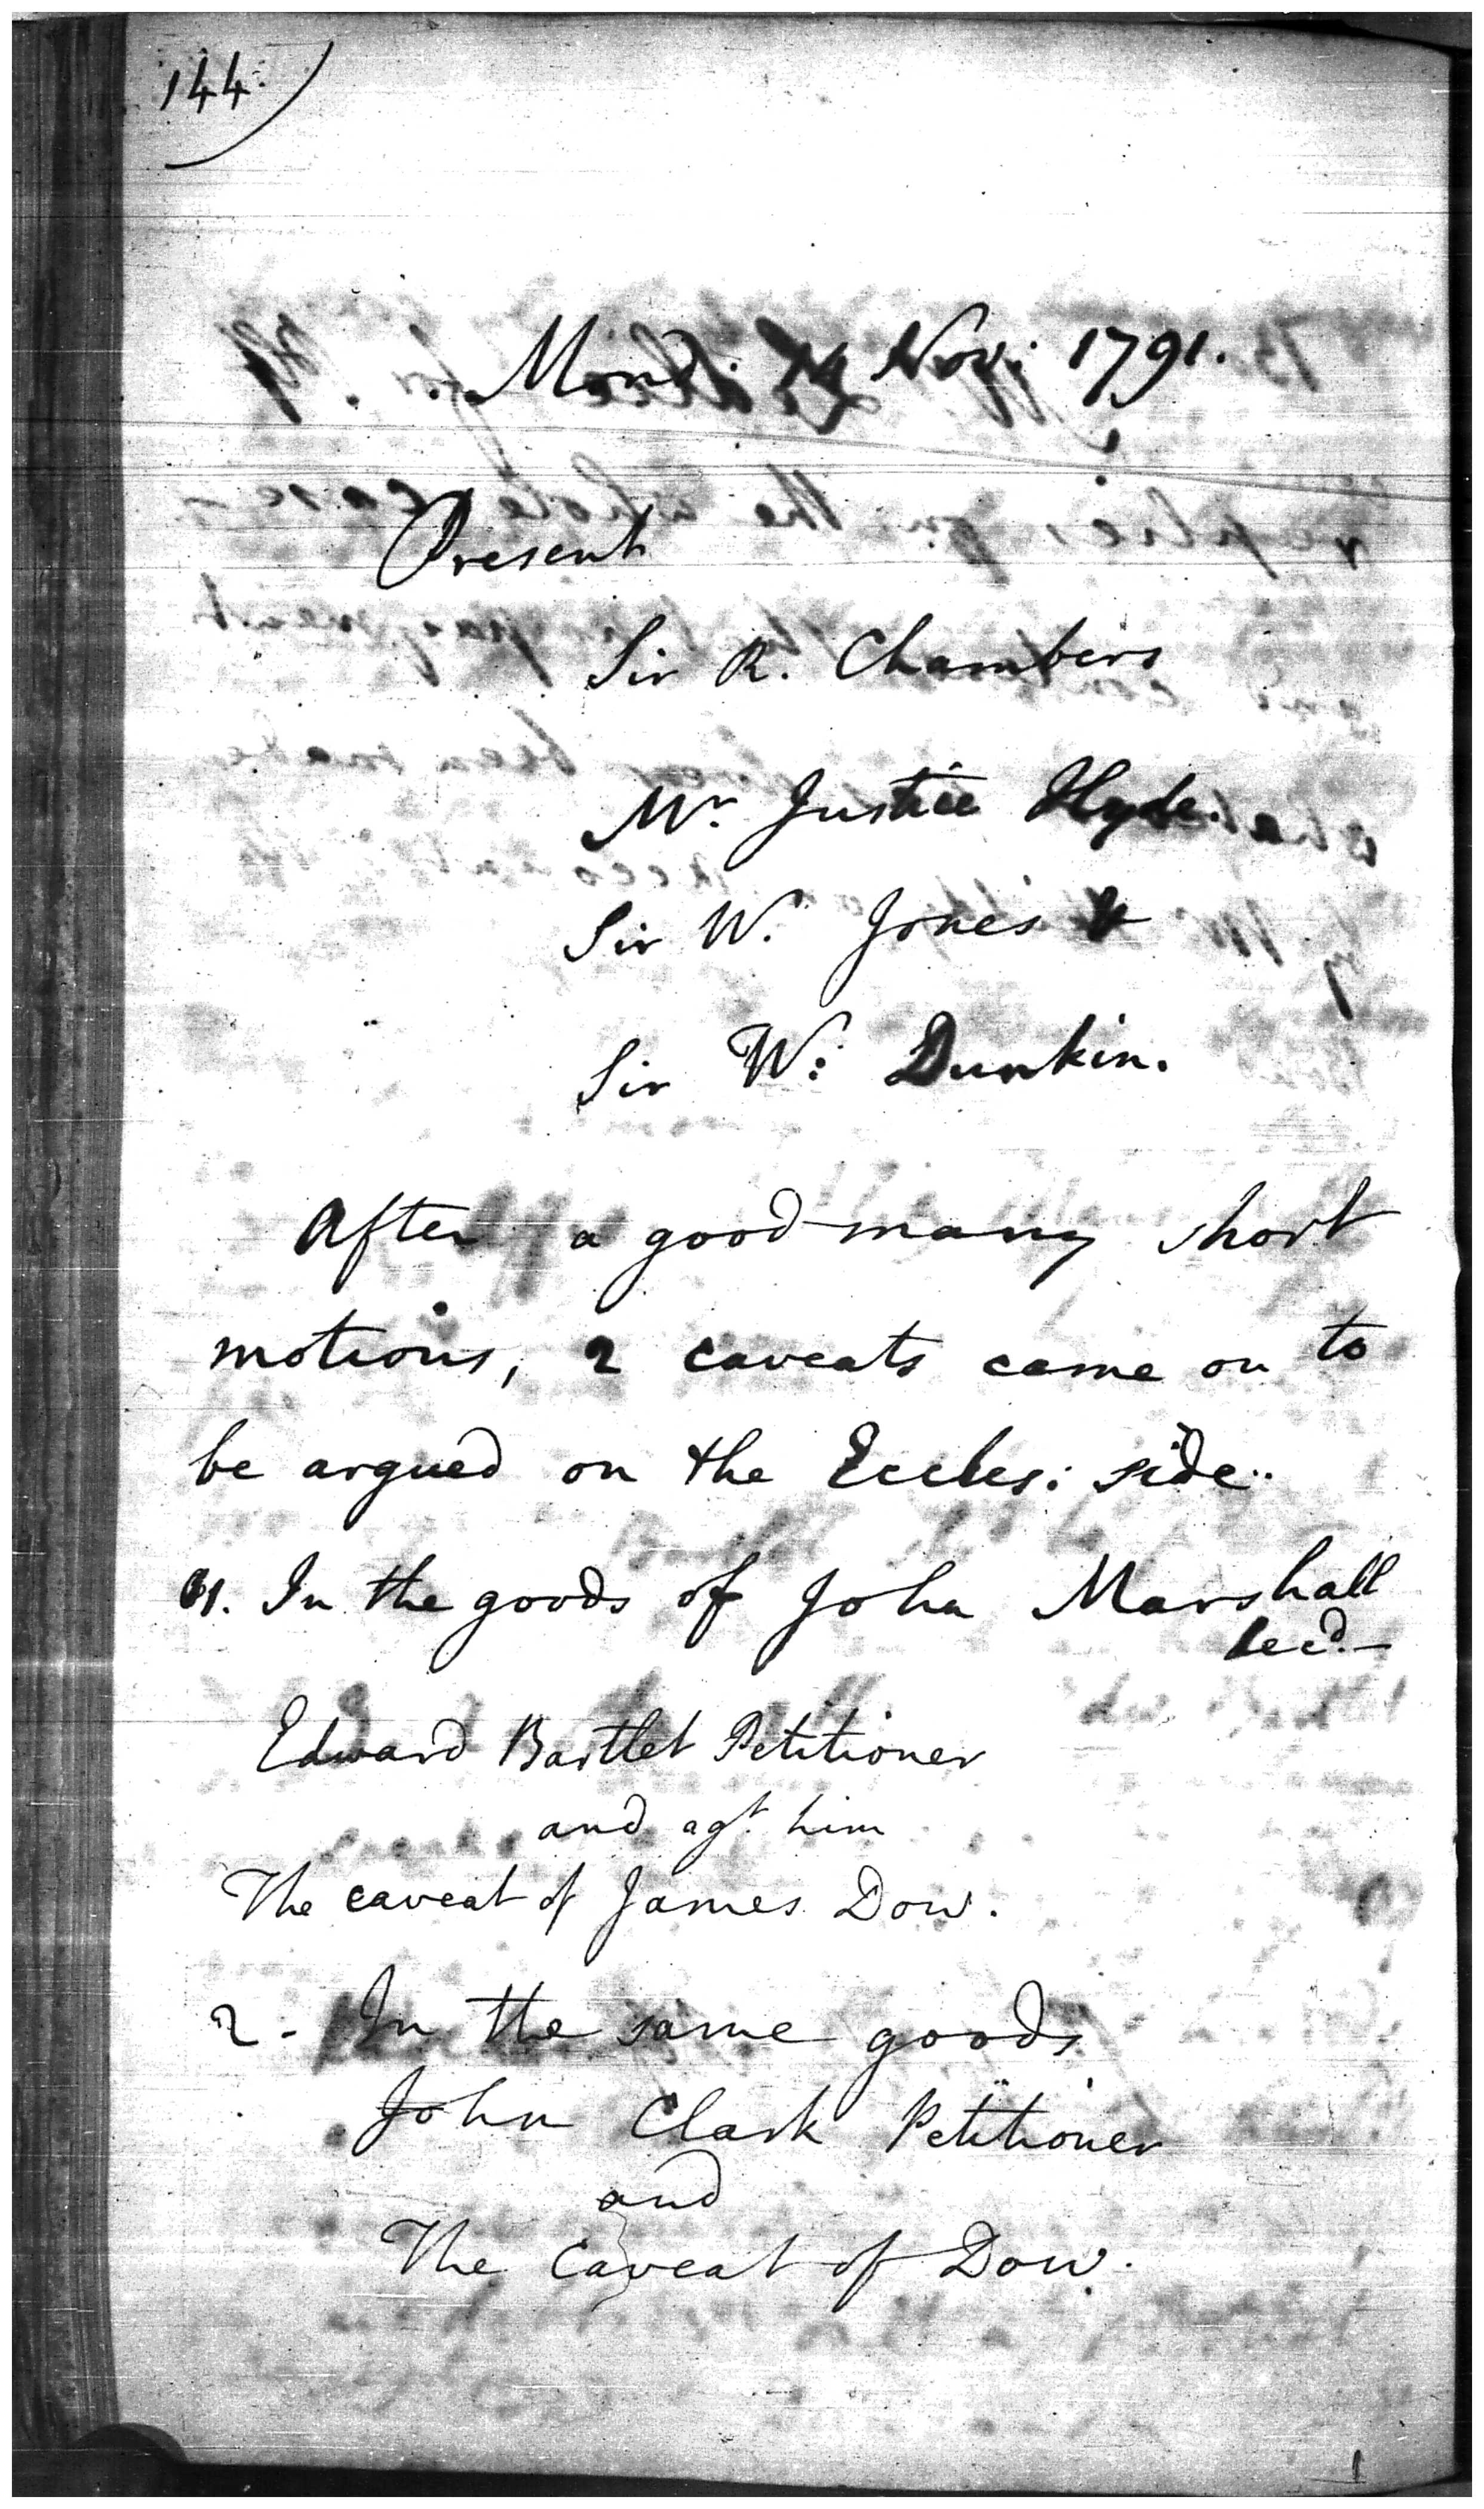 144
Mond: Nov: 1791.
Present
Sir R. Chambers
Mr. Justice Hyde.
Sir W. Jones &
Sir W: Dunkin.
After a good many short
motions, 2 caveats came on to
be argued on the Eccles: side.
1. In the goods of John Marshall
decd.
Edward Bartlet Petitioner
and agt. him
The caveat of James Dow.
2. In the same goods
John Clark Petitioner
and
The Caveat of Dow.